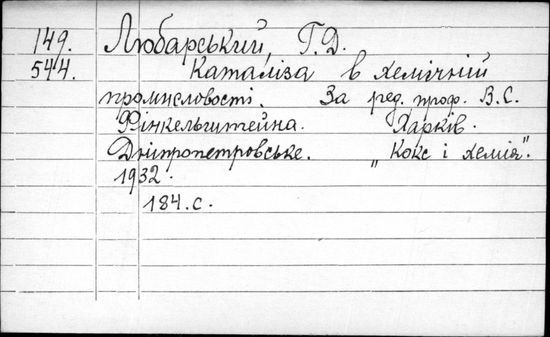 149. Любарський, Г.Д.
544. Каталіза в хемічній
промисловості. За ред. проф. В.С.
Фінкельштейна. Харків.
Дніпропетровське. „Кокс і хемія".
1932.
184.с.